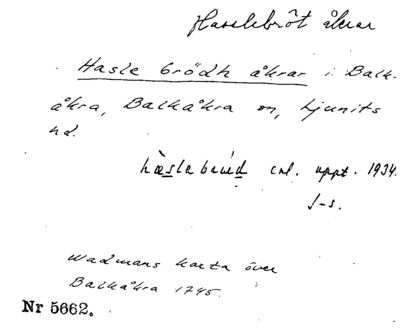 Hasslebröt åkrar
Hasle brödh åkrar i Balk-
åkra, Balkåkra sn, Ljunits
hd.
enl. uppt. 1934.
J-s.
Wadmans karta över
Balkåkra 1745.
Nr 5662.